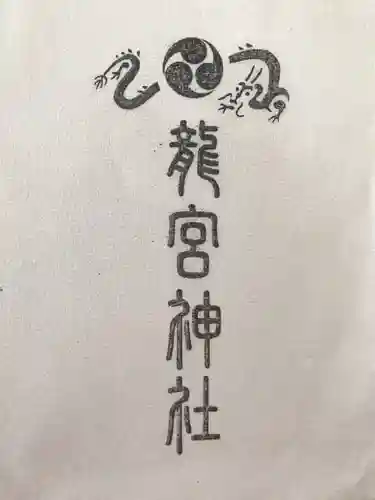 龍宮神社